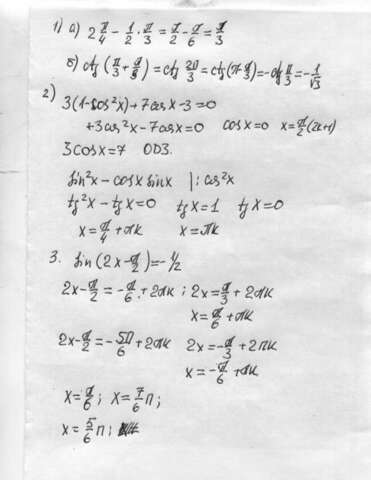 1) а) 2 π/4 - 1/2 · π/3 = π/2 - π/6 = π/3
б) ctg (π/3 + π/3) = ctg 2π/3 = ctg (π - π/3) = -ctg π/3 = -1/√3
2) 3(1-cos²x)+7cosx-3=0
+3cos²x-7cosx=0 cosx=0 x=π/2(2k+1)
3cosx=7 ОДЗ.
sin²x-cosx sinx |:cos²x
tg²x-tgx=0 tgx=1 tgx=0
x=π/4+πk x=πk
3. sin(2x-π/2)=-1/2
2x-π/2=-π/6+2πk; 2x=π/3+2πk
x=π/6+πk
2x-π/2=-5π/6+2πk 2x=-π/3+2πk
x=-π/6+πk
x=π/6; x=7/6π;
x=5/6π;